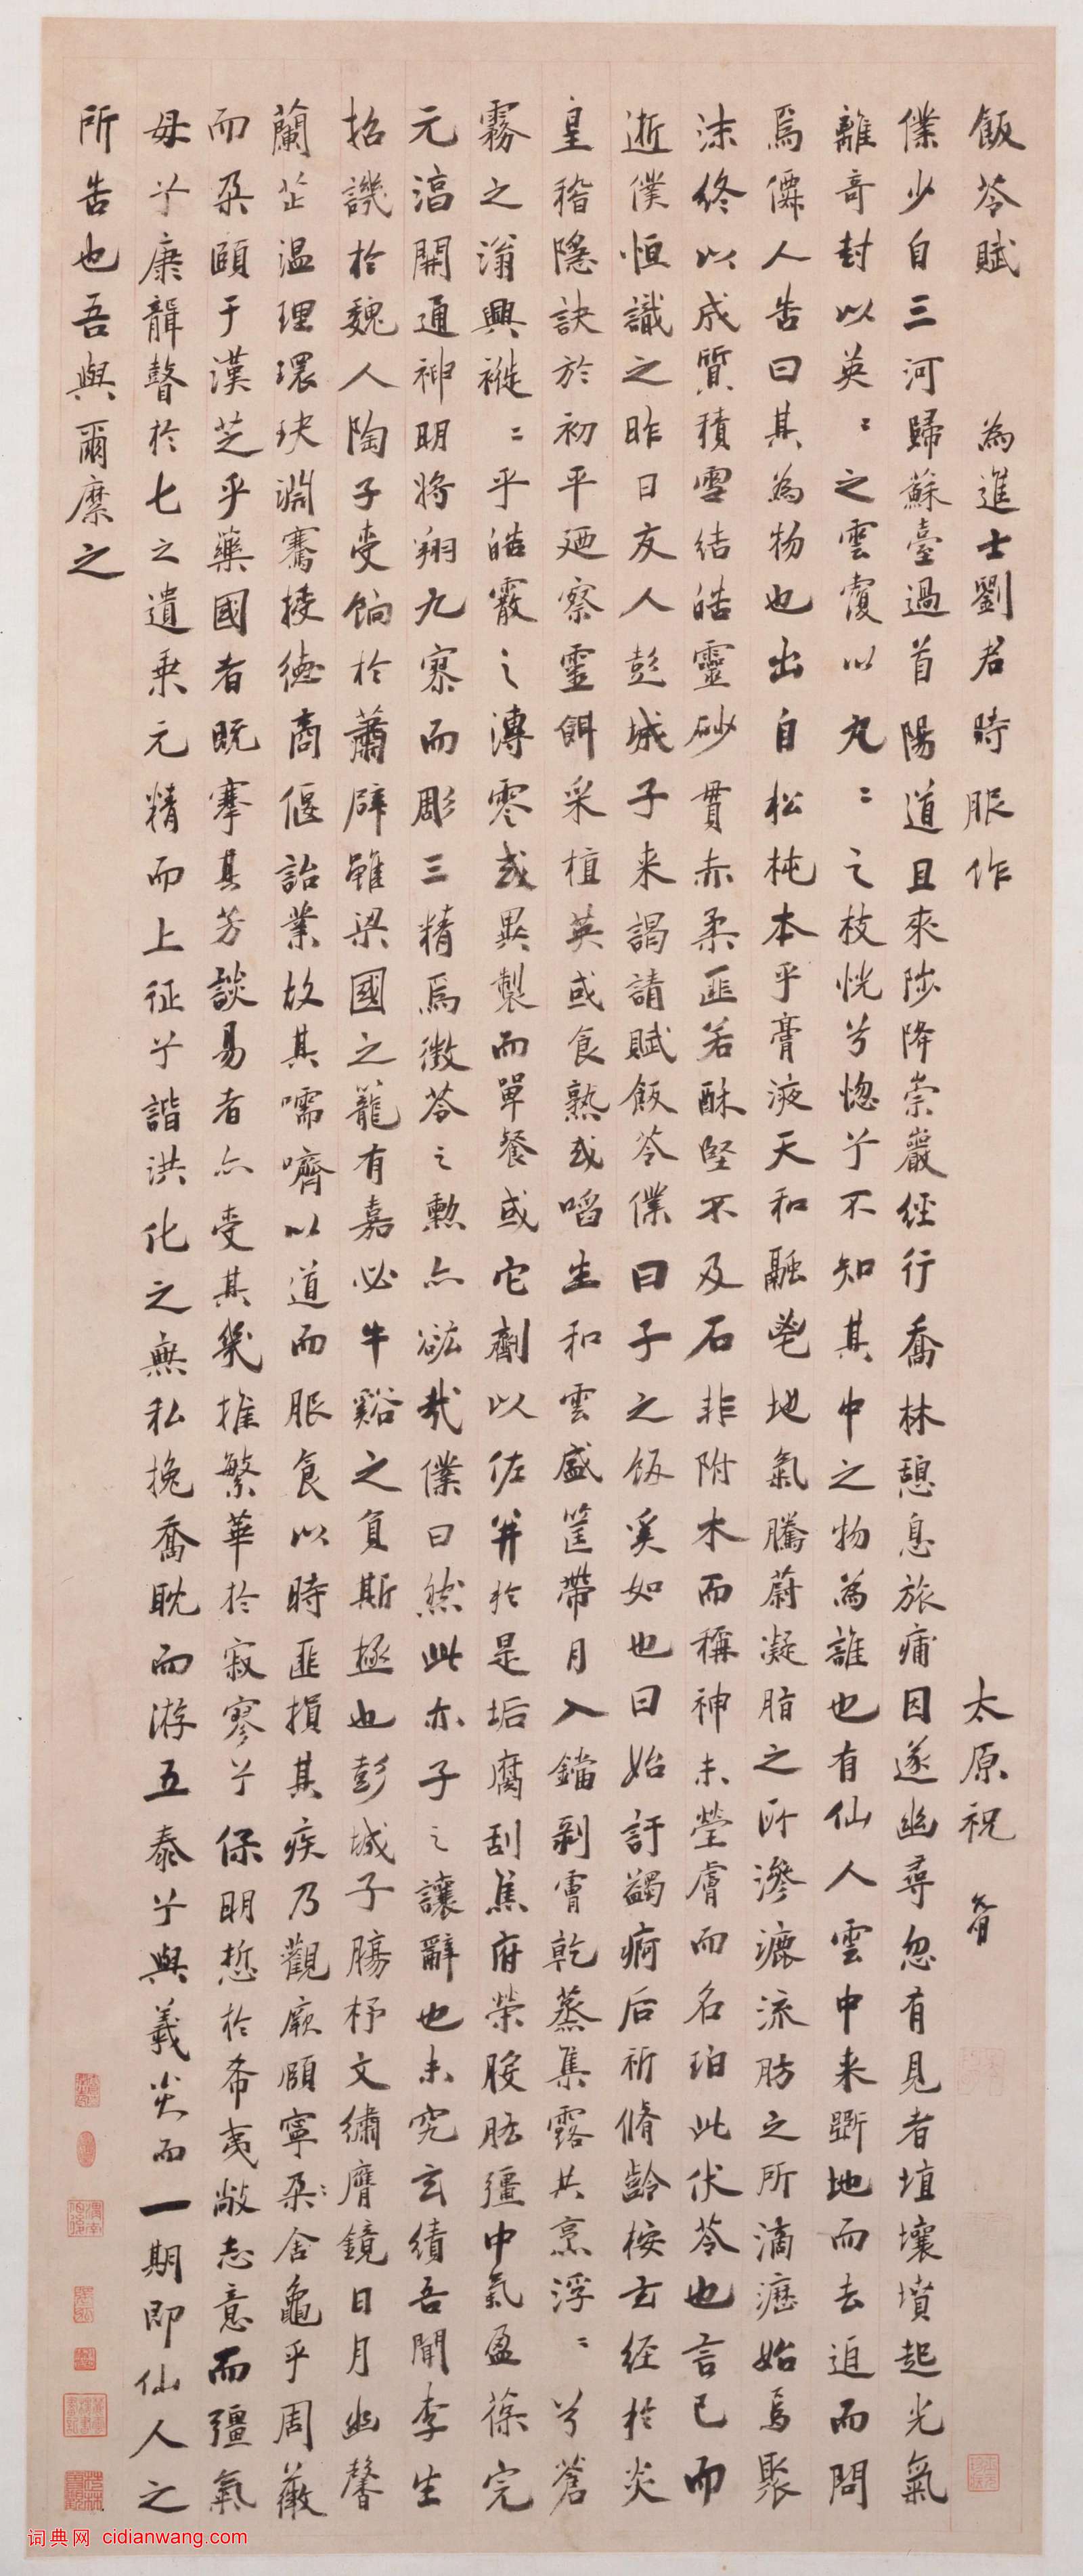 飯苓賦 為進士劉君時服作 太原祝
僕少自三河歸蘇臺過首陽道且來陟降崇巖經行喬林憩息旅痡因遂幽尋忽有見者埴壤墳起光氣
離奇封以英〻之雲覆以丸〻之枝恍兮惚兮不知其中之物為誰也有仙人雲中来斲地而去追而問
焉仙人告曰其為物也出自松杶本乎膏液天和融鬯地氣騰蔚凝脂之所滲漉流肪之所滴瀝始焉聚
沫終以成質積雪結皓靈砂貫赤柔匪若酥堅不及石非附木而稱神未瑩膚而名珀此伏苓也言已而
逝僕恒識之昨日友人彭城子来謁請賦飯苓僕曰子之飯奚如也曰始訝蠲痾后祈脩齡按玄经於炎
皇稽隱訣於初平廼察靈餌采植英或食熟或啗生和雲盛筐帶月入鐺剥膚乾蒸集露共烹浮〻兮蒼
霧之滃興褷〻乎皓霰之溥零或異製而單餐或它劑以佐并於是垢腐刮焦府荣朘胠彊中氣盈葆完
元滀開通神明将翔九寨而彫三精焉微苓之勲亦㳒哉僕曰然此亦子之讓辭也未究玄績吾聞李生
招譏於魏人陶子受餉於蕭辟雖梁國之籠有嘉必牛谿之負斯極也彭城子腸杼文繡膺鏡日月幽馨
蘭芷温理環玦淵騫接德商偃詒業故其嚅嚌以道而服食以時匪損其疾乃觀厥頤寧朶〻舍龜乎周薇
而朶頤于漢芝乎藥國者既搴其芳談易者亦受其幾推繁華於寂寥兮保明悊於希夷敞志意而彊氣
毋兮康聾瞽於七之遺乗元精而上征兮諧洪化之無私挽喬耽而游五泰兮與羲炎而一期即仙人之
所告也吾與爾縻之
词典网 cidianwang.com